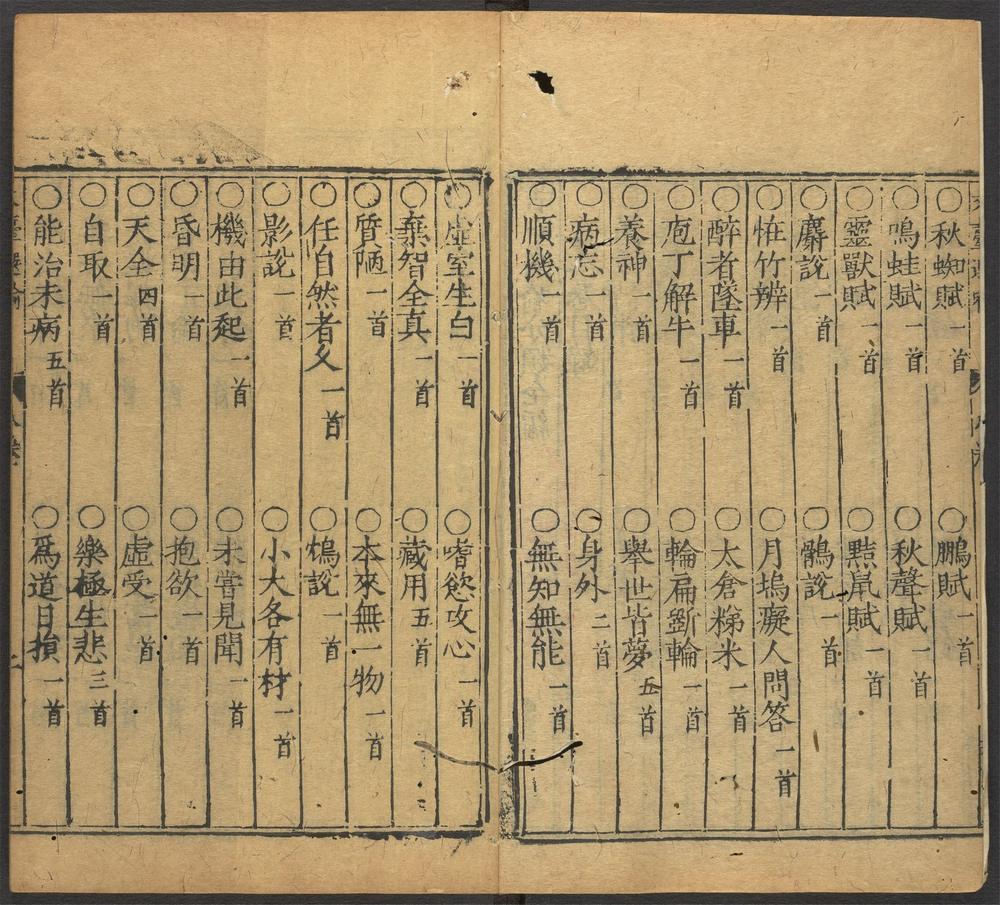 ○秋蜘賦一首　○鵬賦一首
○鳴蛙賦一首　○秋聲賦一首
○靈獸賦一首　○黠鼠賦一首
○麝説一首　○鶻説一首
○恠竹辨一首　○月塢癡人問答一首
○醉者墜車一首　○太倉稊米一首
○庖丁解牛一首　○輪扁斵輪一首
○養神一首　○舉世皆夢五首
○病忘一首　○身外二首
○順機一首　○無知無能一首
○虛室生白一首　○嗜慾攻心一首
○棄智全真一首　○藏用五首
○質陋一首　○本來無一物一首
○任自然者久一首　○鴆説一首
○影説一首　○小大各有材一首
○機由此起一首　○未嘗見聞一首
○昏明一首　○抱欲一首
○天全四首　○虛受一首
○自取一首　○樂極生悲三首
○能治未病五首　○爲道日損一首